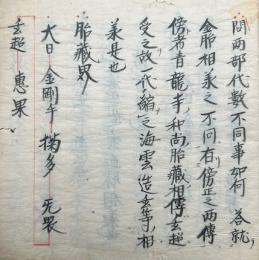 問両部代数不同事如何 答就
金胎相承之不同有傍正之両傳
傍者青龍寺和尚胎藏相傳玄超
受之故一代縮之海雲造玄等相
承是也
胎藏界
大日 金剛手 掬多 无畏
玄超 惠果